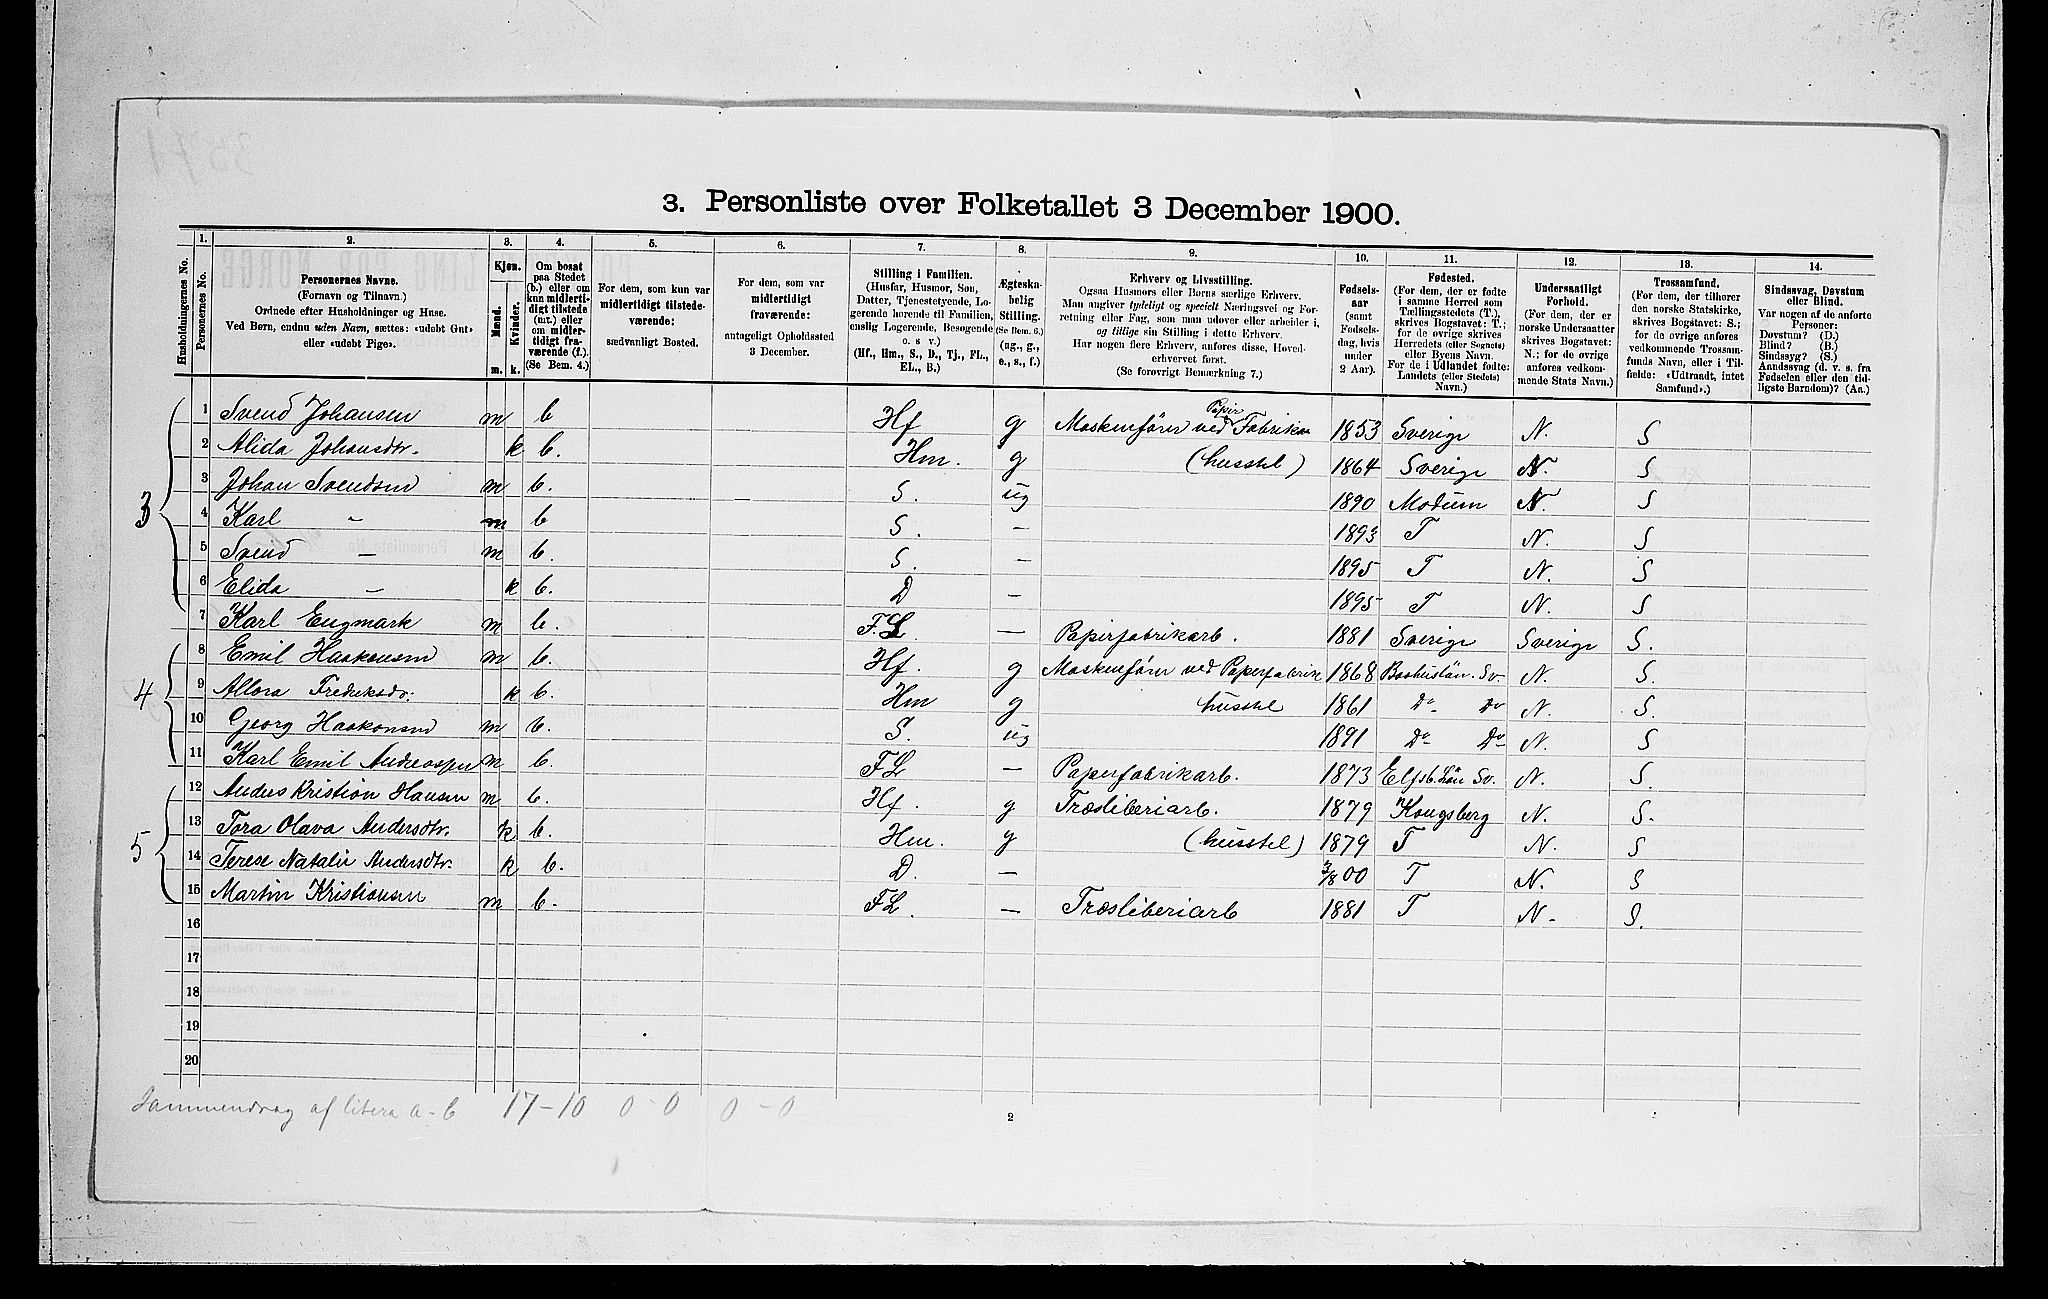 3. Personliste over Folketallet 3 December 1900.
Husholdningernes No.
1. Personernes No.
2. Personernes Navne.
(Fornavn og Tilnavn.)
Ordnede efter Husholdninger og Huse.
Ved Børn, endnu uden Navn, sættes: «udøbt Gut»
eller «udøbt Pige».
3. Kjøn.
Mænd. Kvinder.
m. k.
4. Om bosat
paa Stedet
(b.) eller om
kun midlerti-
digt tilstede
(mt.) eller
om midler-
tidigt fra-
værende (f.).
(Se Bem. 4.)
5. For dem, som kun var
midlertidigt tilstede-
værende:
sædvanligt Bosted.
6. For dem, som var
midlertidigt
fraværende:
antageligt Opholdssted
3 December.
7. Stilling i Familien.
(Husfar, Husmor, Søn,
Datter, Tjenestetyende, Lo-
gerende hørende til Familien,
enslig Logerende, Besøgende
o. s. v.)
(Hf., Hm., S., D., Tj., FL.,
EL., B.)
8. Ægteska-
belig
Stilling.
(Se Bem. 6.)
(ug., g.,
e., s., f.)
9. Erhverv og Livsstilling.
Ogsaa Husmors eller Børns særlige Erhverv.
Man angiver tydeligt og specielt Næringsvei og For-
retning eller Fag, som man udøver eller arbeider i,
og tillige sin Stilling i dette Erhverv.
Har nogen flere Erhverv, anføres disse, Hoved-
erhvervet først.
(Se forøvrigt Bemærkning 7.)
10. Fødsels-
aar
(samt
Fødsels-
dag, hvis
under
2 Aar).
11. Fødested.
(For dem, der er fødte
i samme Herred som
Tællingsstedets (T.),
skrives Bogstavet: T.;
for de øvrige skrives
Herredets (eller Sognets)
eller Byens Navn.
For de i Udlandet fødte:
Landets (eller Stedets)
Navn.)
12. Undersaatligt
Forhold.
(For dem, der er
norske Undersaatter
skrives Bogstavet:
N.; for de øvrige
anføres vedkom-
mende Stats Navn.)
13. Trossamfund.
(For dem, der tilhører
den norske Statskirke,
skrives Bogstavet: S.;
for de øvrige anføres
vedkommende Trossam-
funds Navn, eller i Til-
fælde: «Udtraadt, intet
Samfund».)
14. Sindssvag, Døvstum
eller Blind.
Var nogen af de anførte
Personer:
Døvstum? (D.)
Blind? (B.)
Sindssyg? (S.)
Aandssvag (d. v. s. fra
Fødselen eller den tid-
ligste Barndom)? (Aa.)
3 1 Svend Johansen m b Hf g Maskenfører ved Papir Fabriken 1853 Sverige N. S
2 Alida Johansdtr. k b. Hm. g (husstel) 1864 Sverige N. S
3 Johan Svendsen m b. S. ug 1890 Modum N S
4 Karl - m b S. - 1893 T N. S
5 Svend - m b. S. - 1895 T N. S
6 Elida - k b. D - 1895 T N. S
7 Karl Engmark m b. F.L - Papirfabrikarb. 1881 Sverige Sverige S.
4 8 Emil Haakonsen m b. Hf. g Maskenfører ved Papirfabrik 1868 Baahuslän. Sv. N. S.
9 Allora Fredriksdr. k b. Hm g husstel 1861 Do Do N. S.
10 Georg Haakonsen m b. S. ug 1891 Do Do N. S
11 Karl Emil Andreassen m b. FL - Papirfabrikarb. 1873 Elfsb. Län Sv. N. S.
5 12 Anders Kristian Hansen m b. Hf. g Træsliberiarb. 1879 Kongsberg N. S.
13 Tora Olava Andersdtr. k b. Hm. g (husstel) 1879 T N. S
14 Terese Natalie Andersdtr. k b. D. - 3/8 00 T N. S
15 Martin Kristiansen m b. FL. - Træsliberiarb 1881 T N. S.
16
17
18
19
20
Sammendrag af litera a-b 17-10 0-0 0-0
2